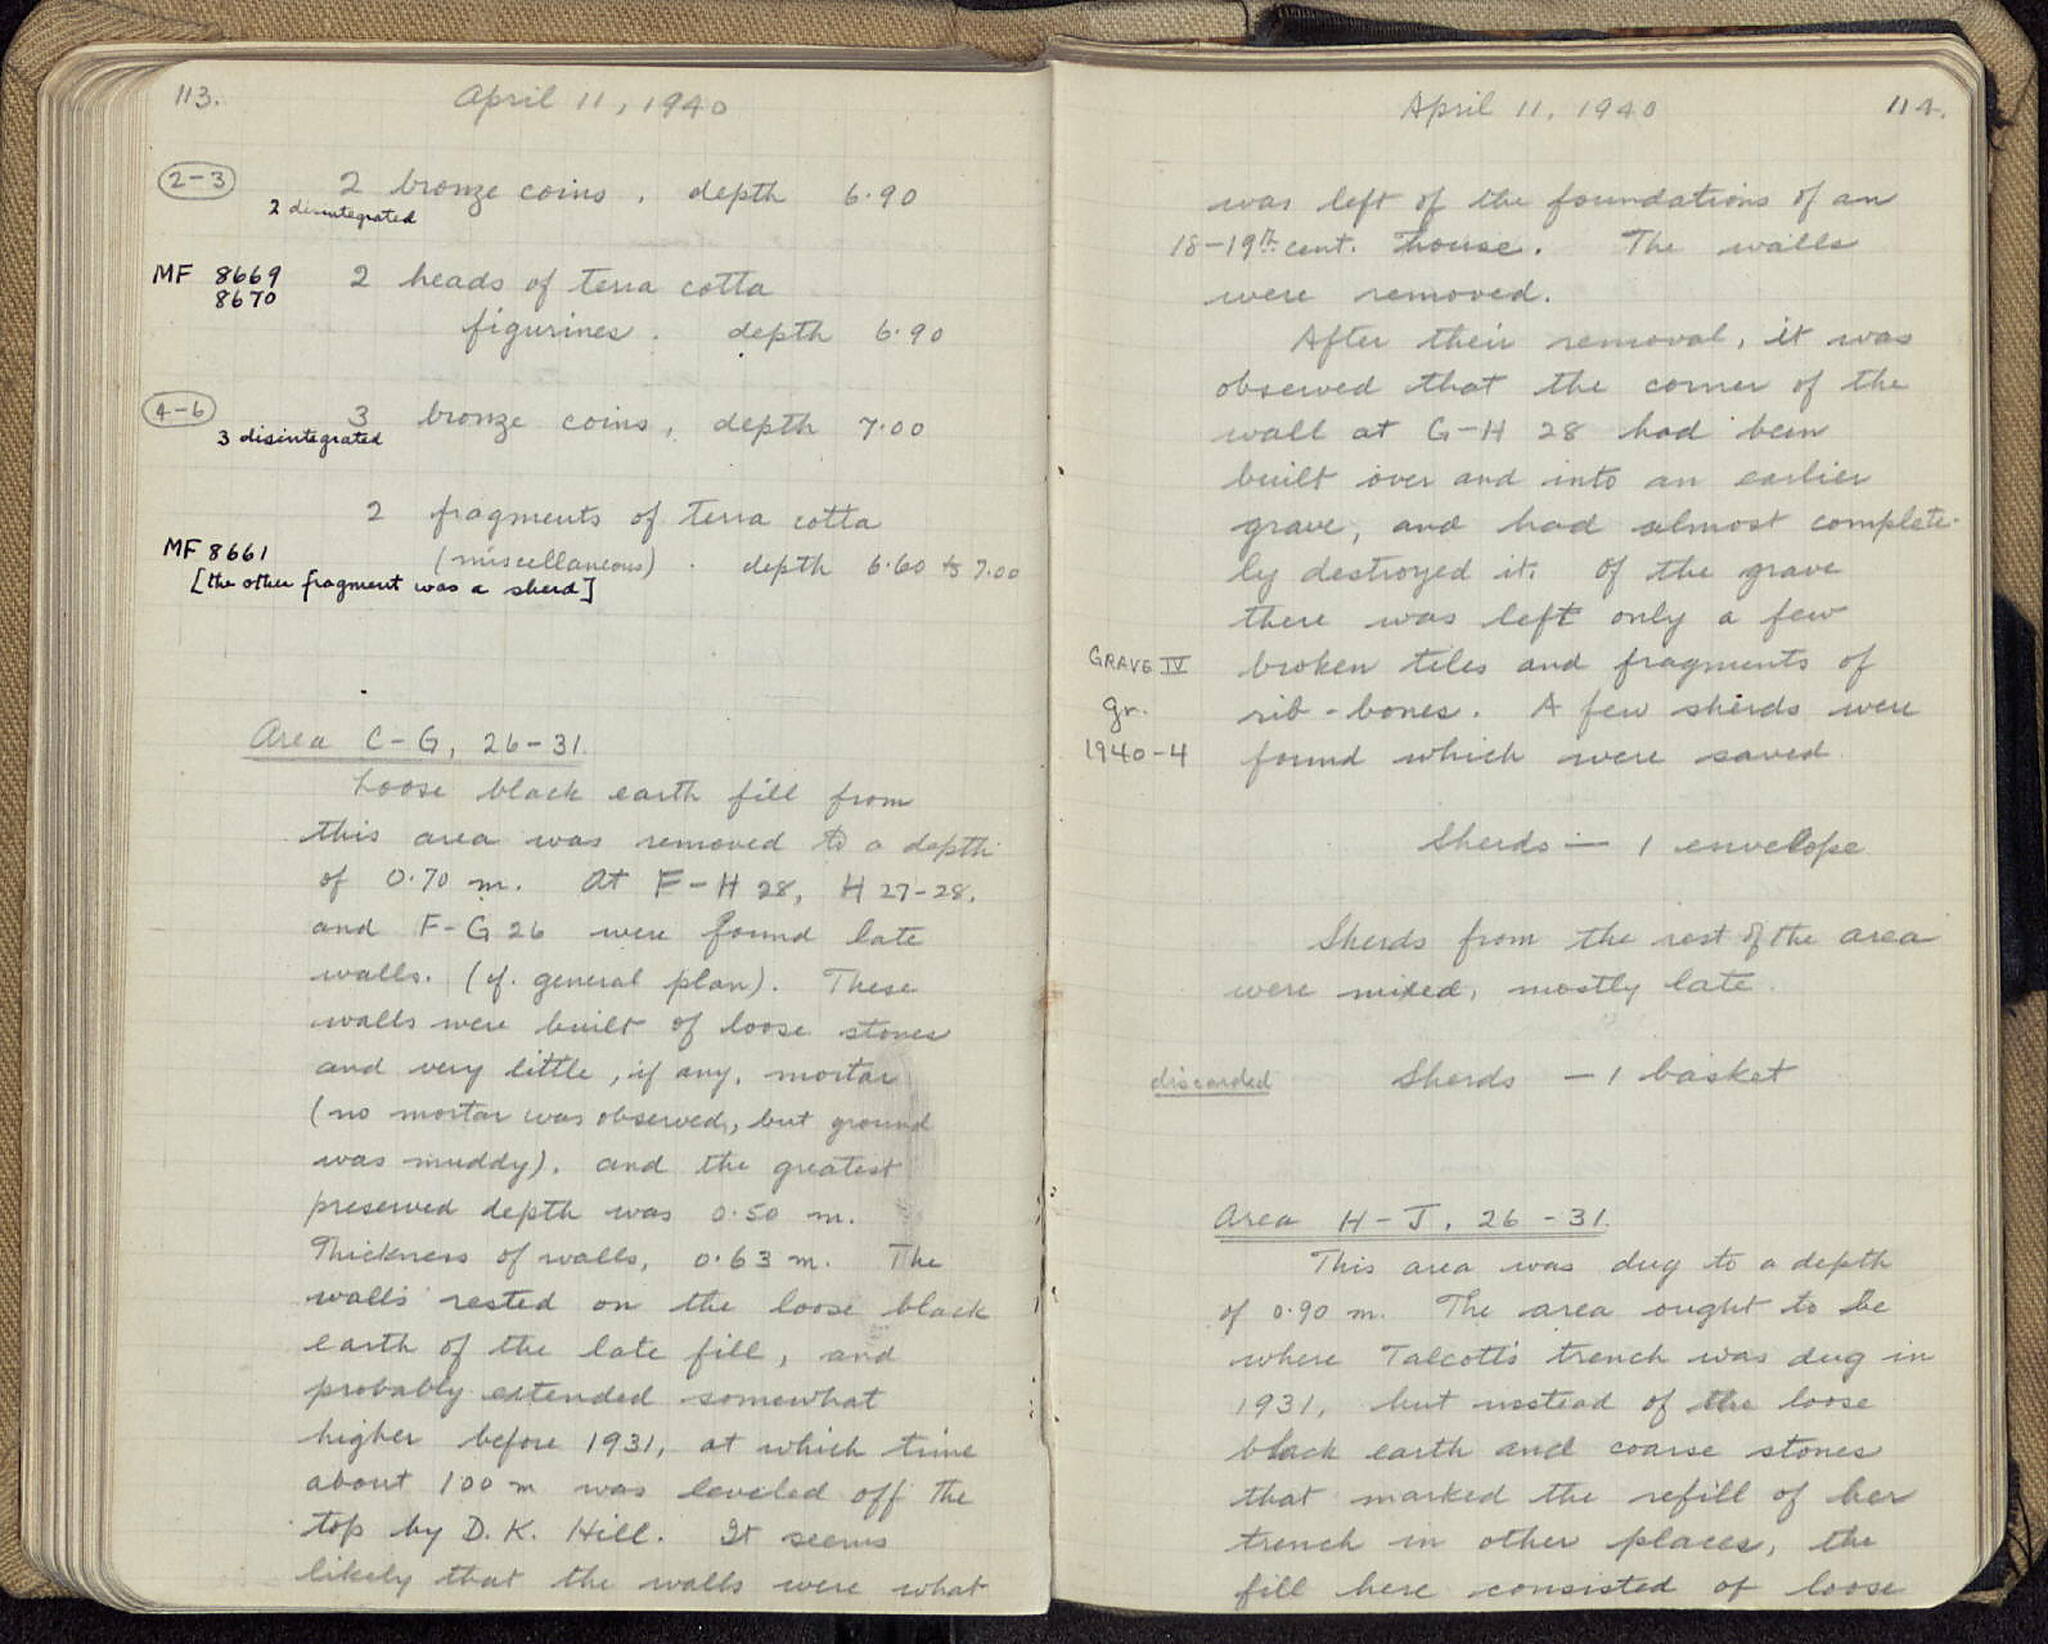 113.
April 11, 1940
2-3
2 bronze coins, depth 6.90
2 disintegrated
MF 8669
8670
2 heads of terra cotta
figurines. depth 6.90
4-6
3 bronze coins, depth 7.00
3 disintegrated
2 fragments of terra cotta
MF 8661
(miscellaneous). depth 6.60 to 7.00
[the other fragment was a sherd]
Area C-G, 26-31.
Loose black earth fill from
this area was removed to a depth
of 0.70 m. At F-H 28, H 27-28,
and F-G 26 were found late
walls. (cf. general plan). These
walls were built of loose stones
and very little, if any, mortar
(no mortar was observed, but ground
was muddy), and the greatest
preserved depth was 0.50 m.
Thickness of walls, 0.63 m. The
walls rested on the loose black
earth of the late fill, and
probably extended somewhat
higher before 1931, at which time
about 1.00 m was leveled off the
top by D. K. Hill. It seems
likely that the walls were what
April 11, 1940
114.
was left of the foundations of an
18-19th cent. house. The walls
were removed.
After their removal, it was
observed that the corner of the
wall at G-H 28 had been
built over and into an earlier
grave, and had almost complete-
ly destroyed it. Of the grave
there was left only a few
GRAVE IV
broken tiles and fragments of
gr.
rib-bones. A few sherds were
1940-4
found which were saved.
Sherds — 1 envelope
Sherds from the rest of the area
were mixed, mostly late.
discarded
Sherds - 1 basket
Area H-J, 26-31.
This area was dug to a depth
of 0.90 m. The area ought to be
where Talcott's trench was dug in
1931, but instead of the loose
black earth and coarse stones
that marked the refill of her
trench in other places, the
fill here consisted of loose